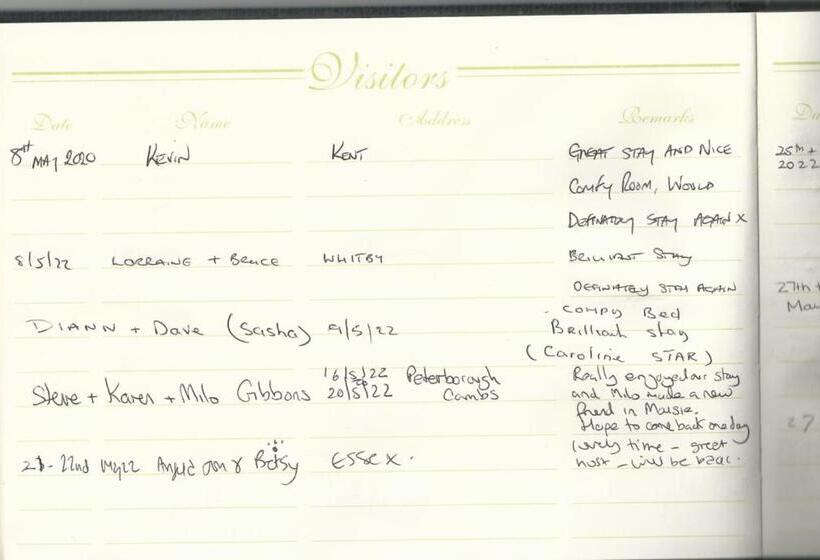 Visitors
Date Name Address Remarks
8st MAY 2020 KEVIN KENT GREAT STAY AND NICE
COMFY ROOM, WOULD
DEFINATELY STAY AGAIN X
8/5/22 LORRAINE + BRUCE WHITBY BRILLIANT STAY
DEFINATELY STAY AGAIN
COMPY Bed
DIANN + Dave (Sasha) 9/5/22 Brilliant stay
(Caroline STAR)
16/5/22 Peterborough Really enjoyed our stay
Steve + Karen + Milo Gibbons 20/5/22 Cambs and Milo made a new
friend in Maisie.
Hope to come back one day
lovely time - great
21 - 22nd May 22 Betsy ESSEX. host - will be back.
25th +
2022
27th +
May
27